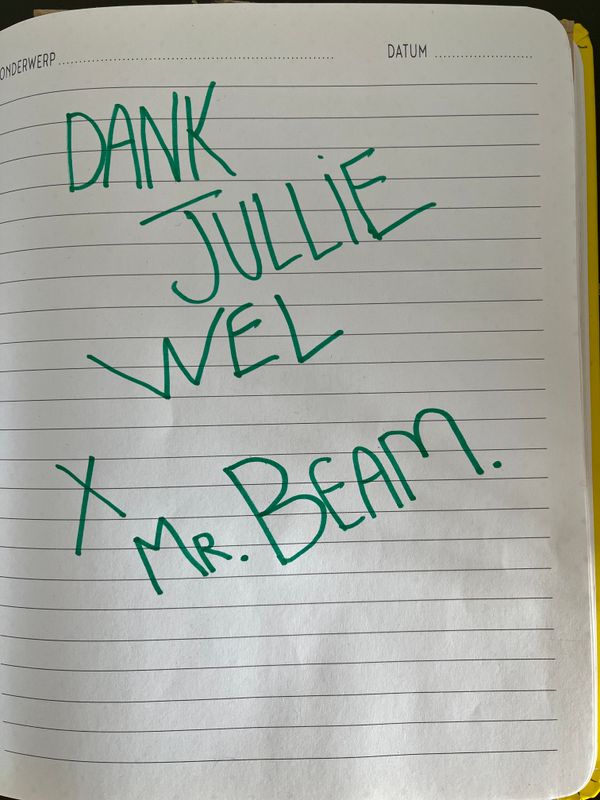 ONDERWERP DATUM
DANK
JULLIE
WEL
X MR. BEAM.